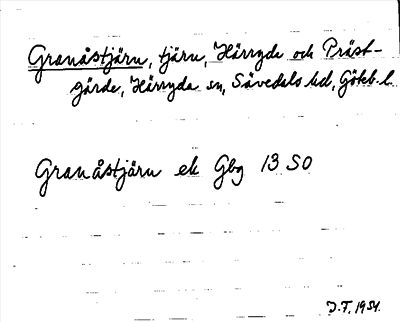 Granåstjärn, tjärn, Härryda och Präst-
gårde, Härryda sn, Sävedals hd, Göteb. l.
Granåstjärn ek Gbg 13 SO
J.F. 1954.